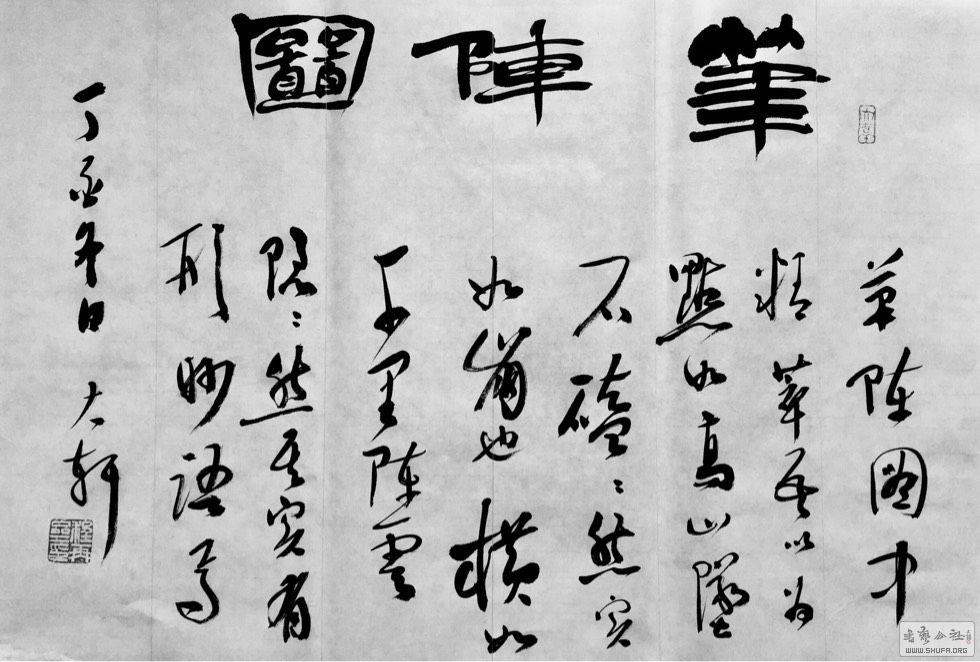 筆陣圖
筆陣圖中
精萃吾以為
點如高山墜
石磕〻然實
如崩也橫如
千里陣雲
隱〻然其實有
形妙語焉
丁亥冬日 大軒
書藝公社
WWW.SHUFA.ORG